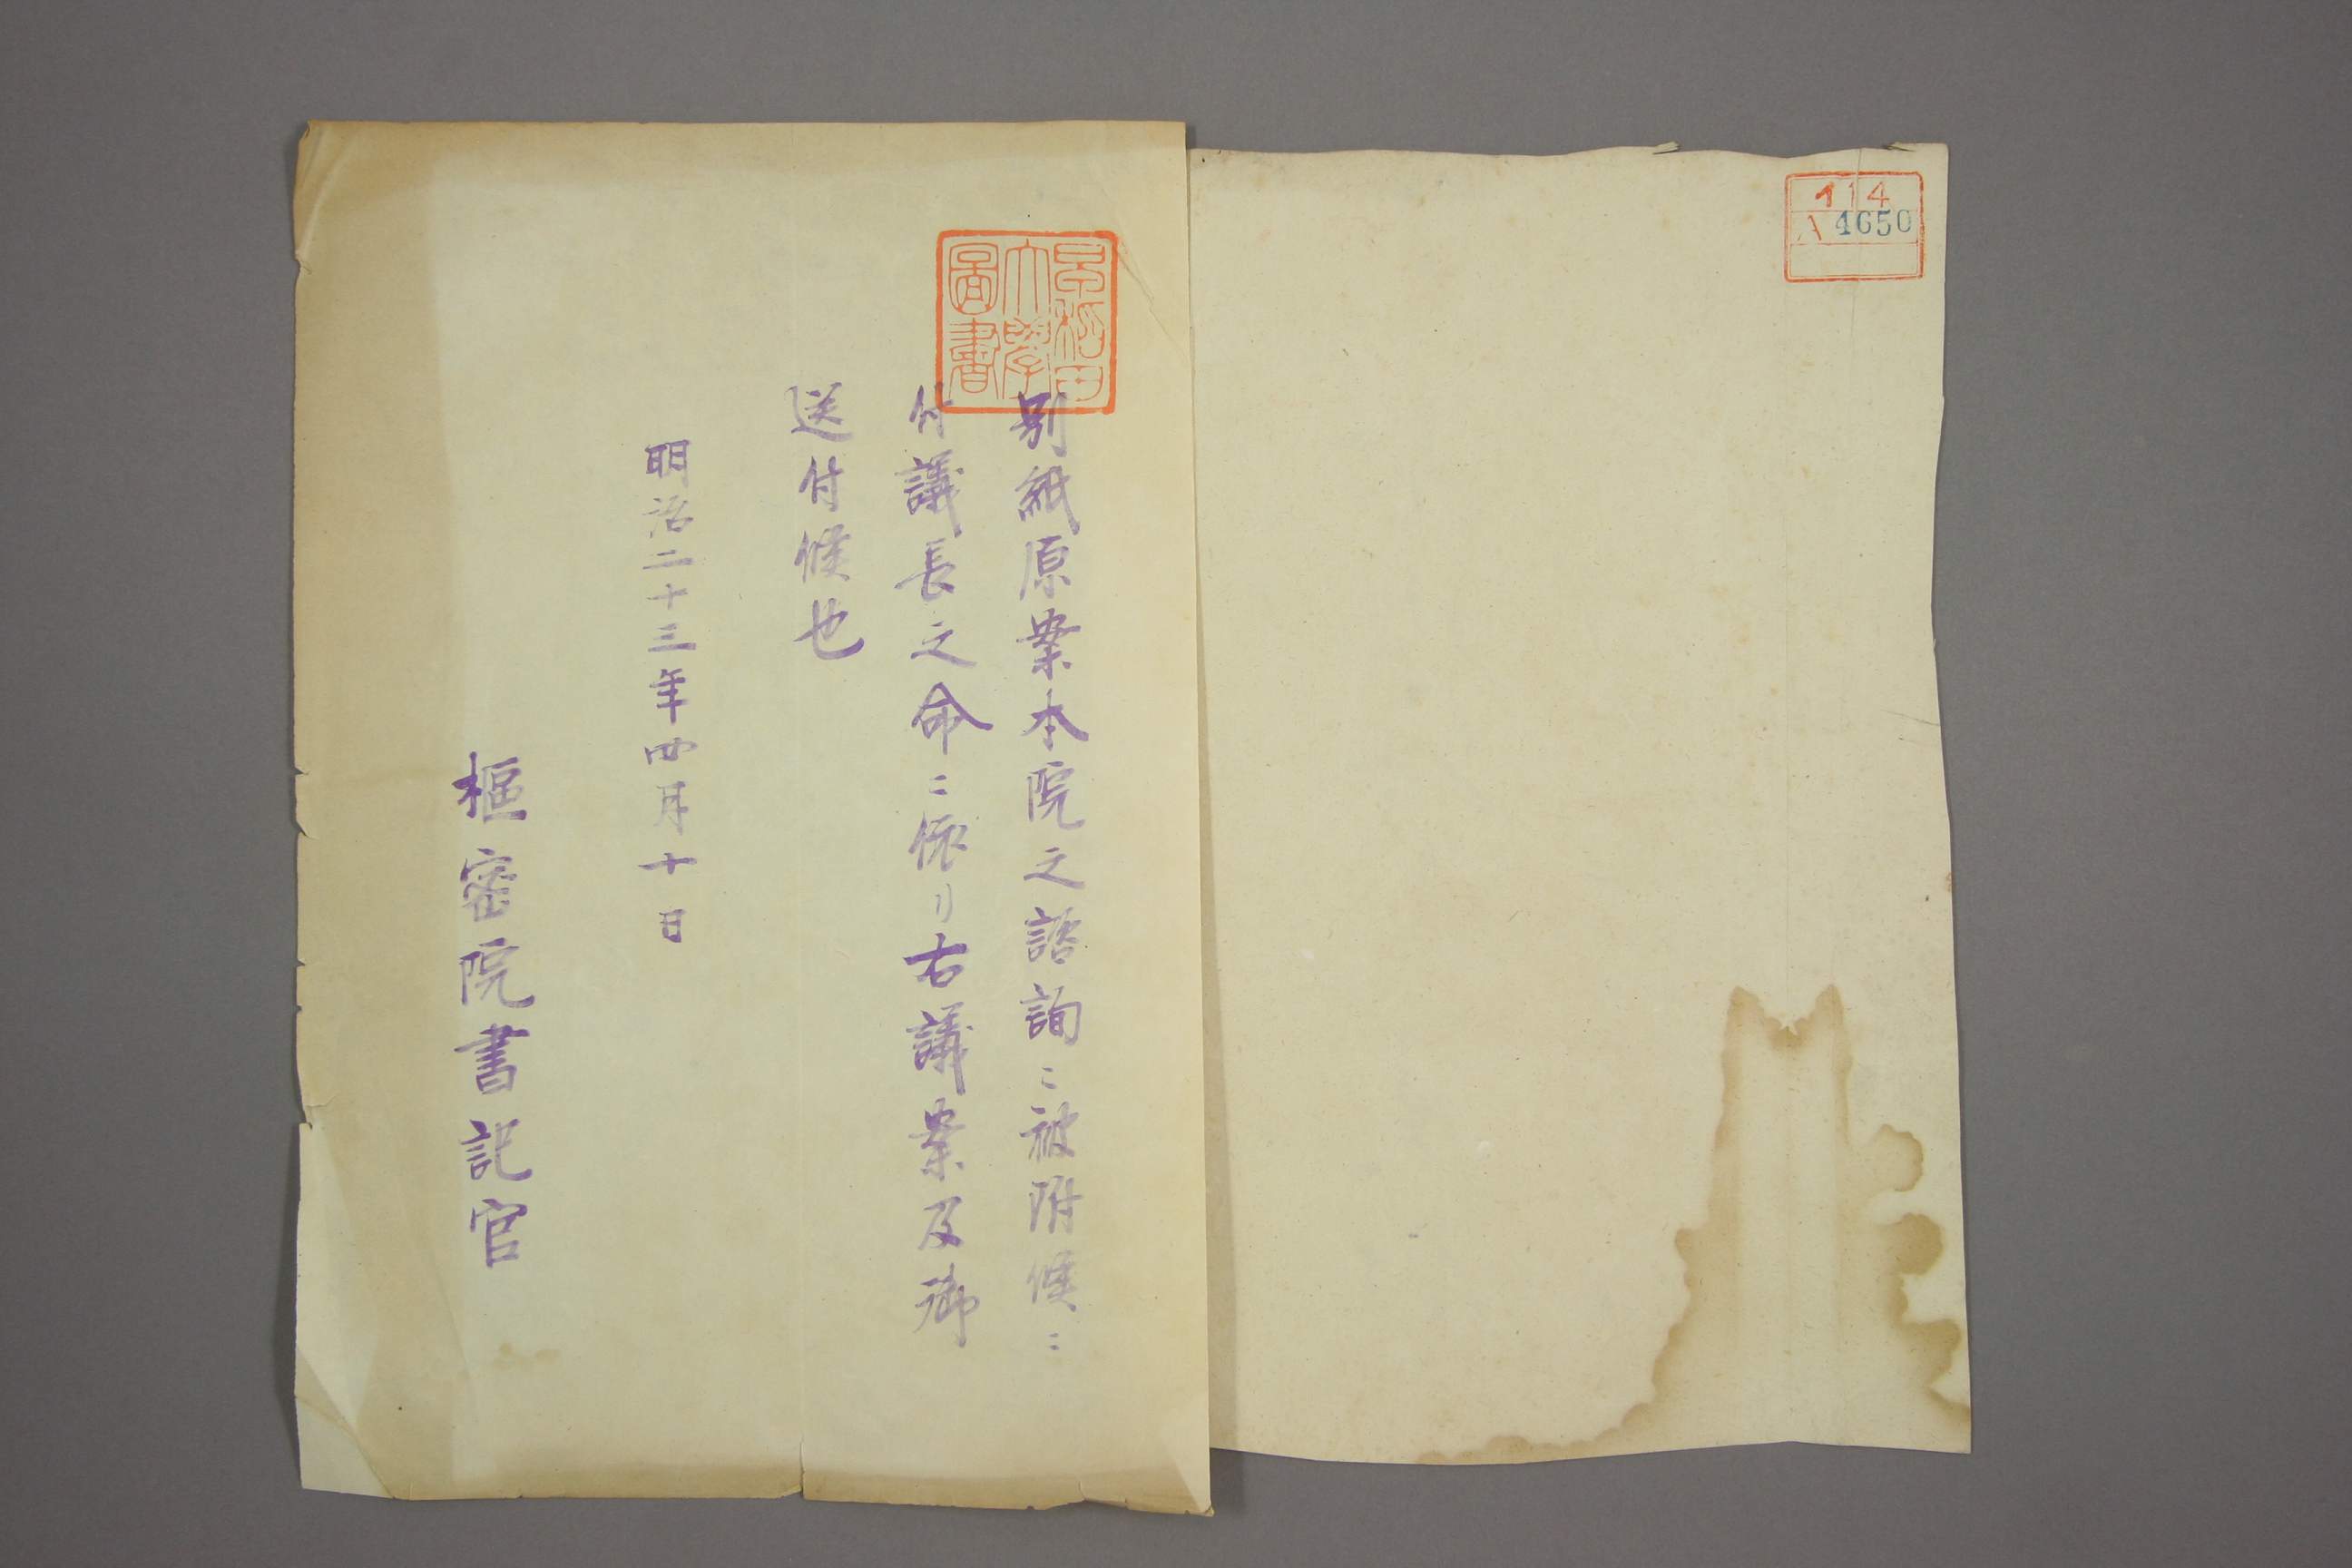 114
A 4650
早稲田
大學
圖書
別紙原案本院之諮詢ニ被附候ニ
付議長之命ニ依リ右議案及御
送付候也
明治二十三年四月十日
樞密院書記官